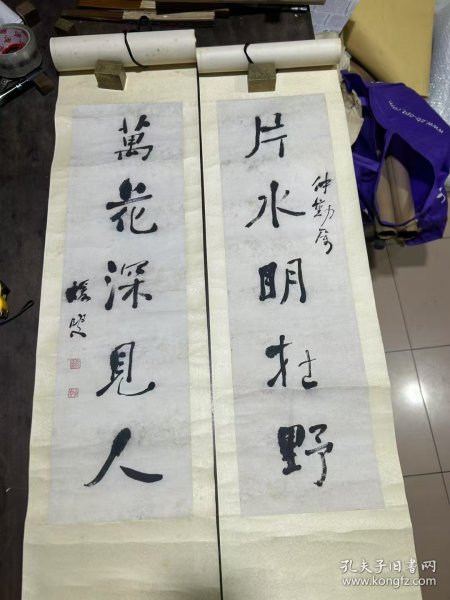 片水明在野
仲勤属
萬花深見人
孔夫子旧书网
www.kongfz.com